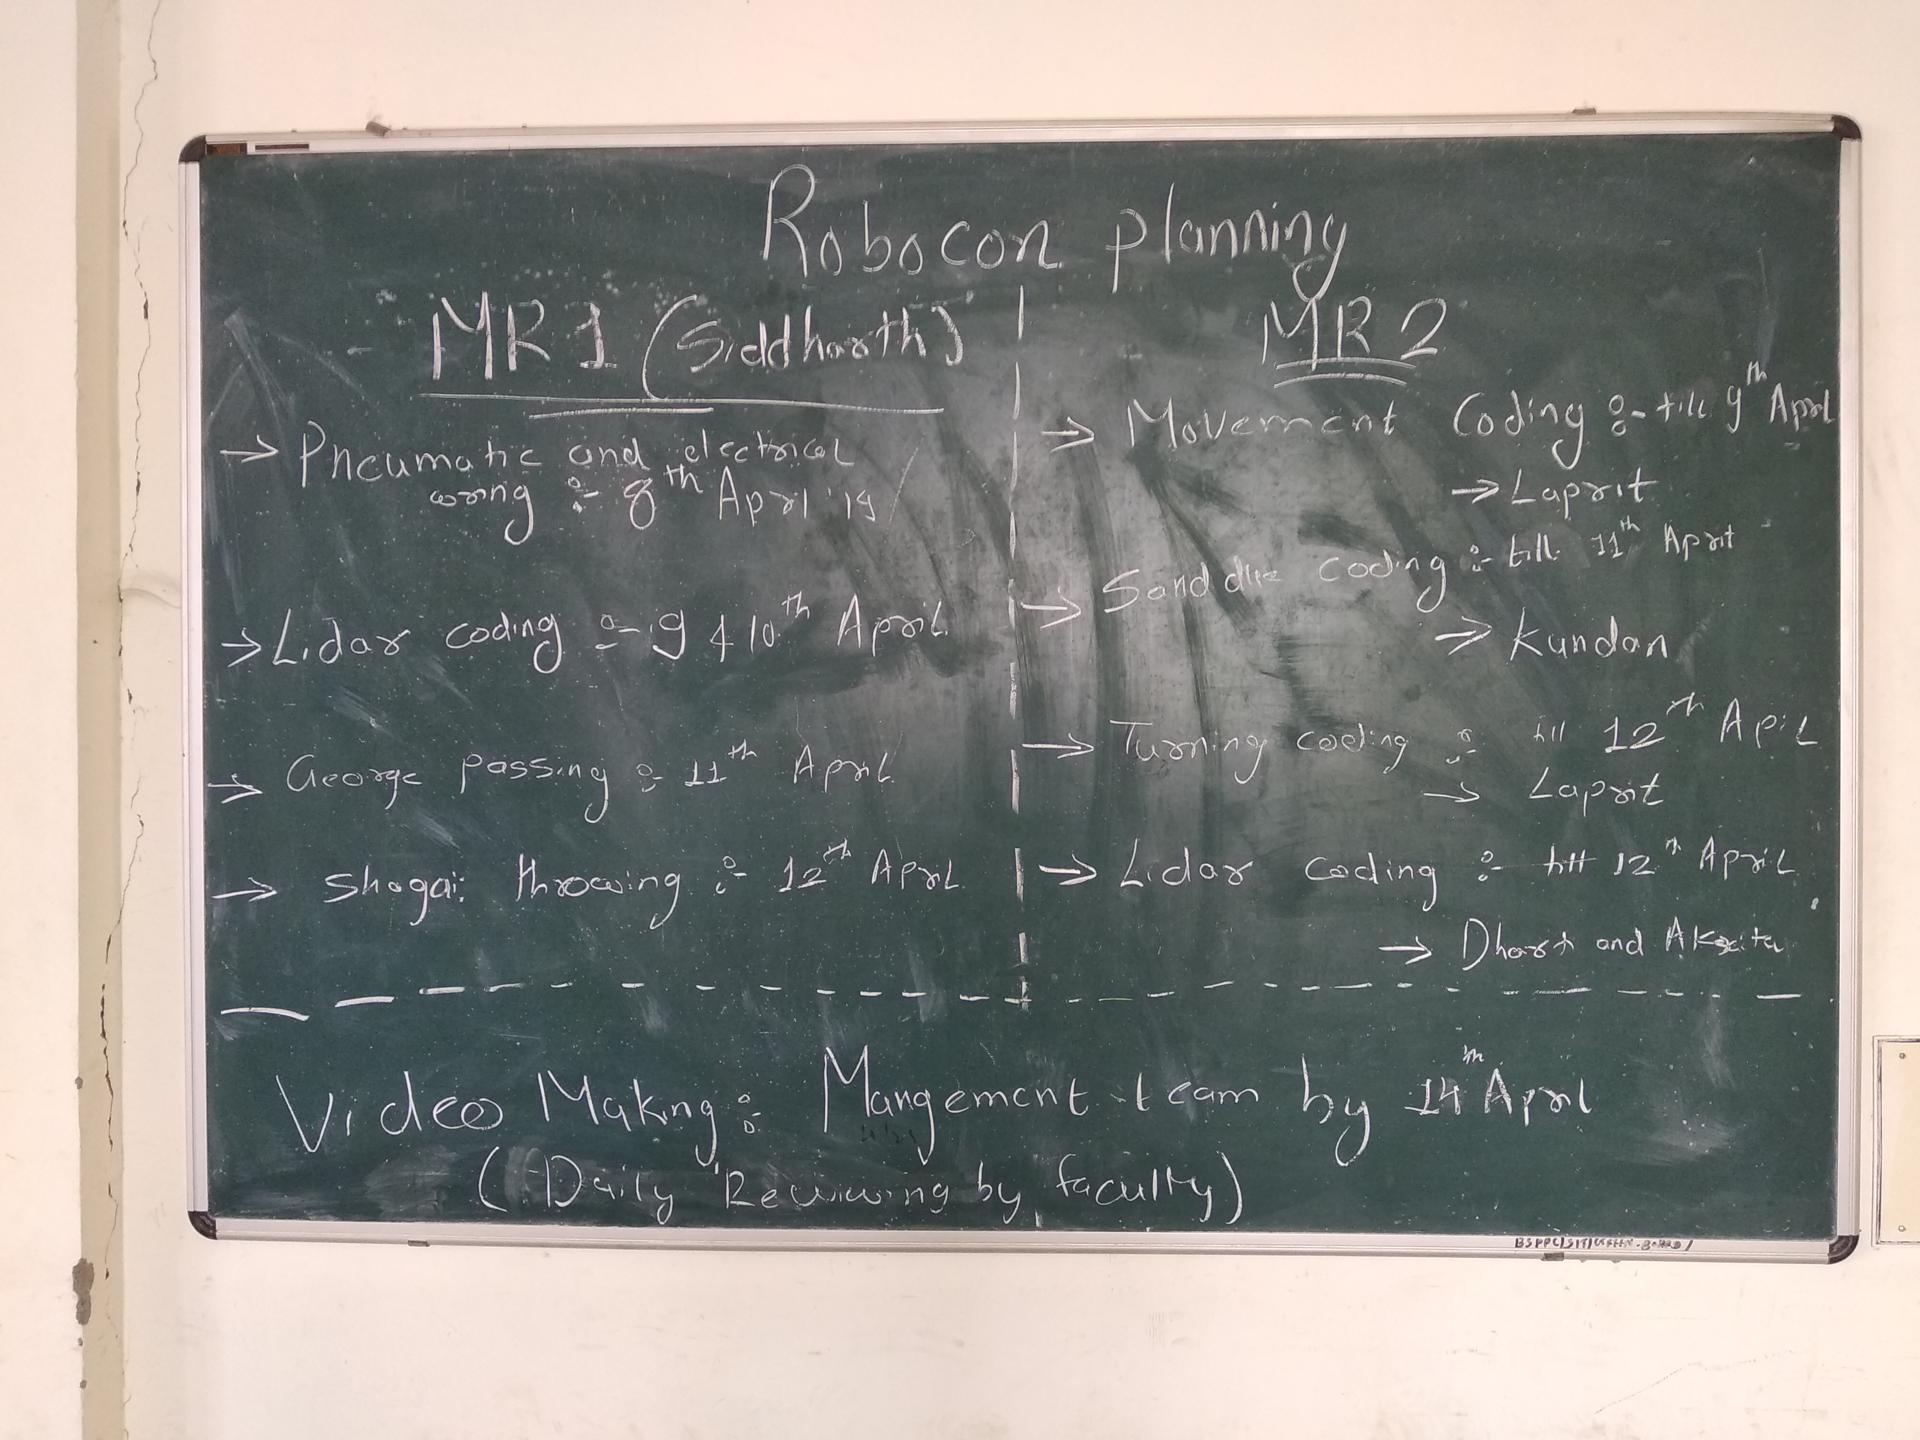 Robocon planning
MR1 (Siddharth)
→ Pneumatic and electrical
wiring :- 8th April '19
→ Lidar coding :- 9 & 10th April
→ George passing :- 11th April
→ Shagai throwing :- 12th April
MR2
→ Movement Coding :- till 9th April
→ Laprit
→ Sand due coding :- till 11th April
→ Kundan
→ Turning coding :- till 12th April
→ Laprit
→ Lidar coding :- till 12th April
→ and
Video Making :- Mangement team by 14th April
(Daily Reviewing by faculty)